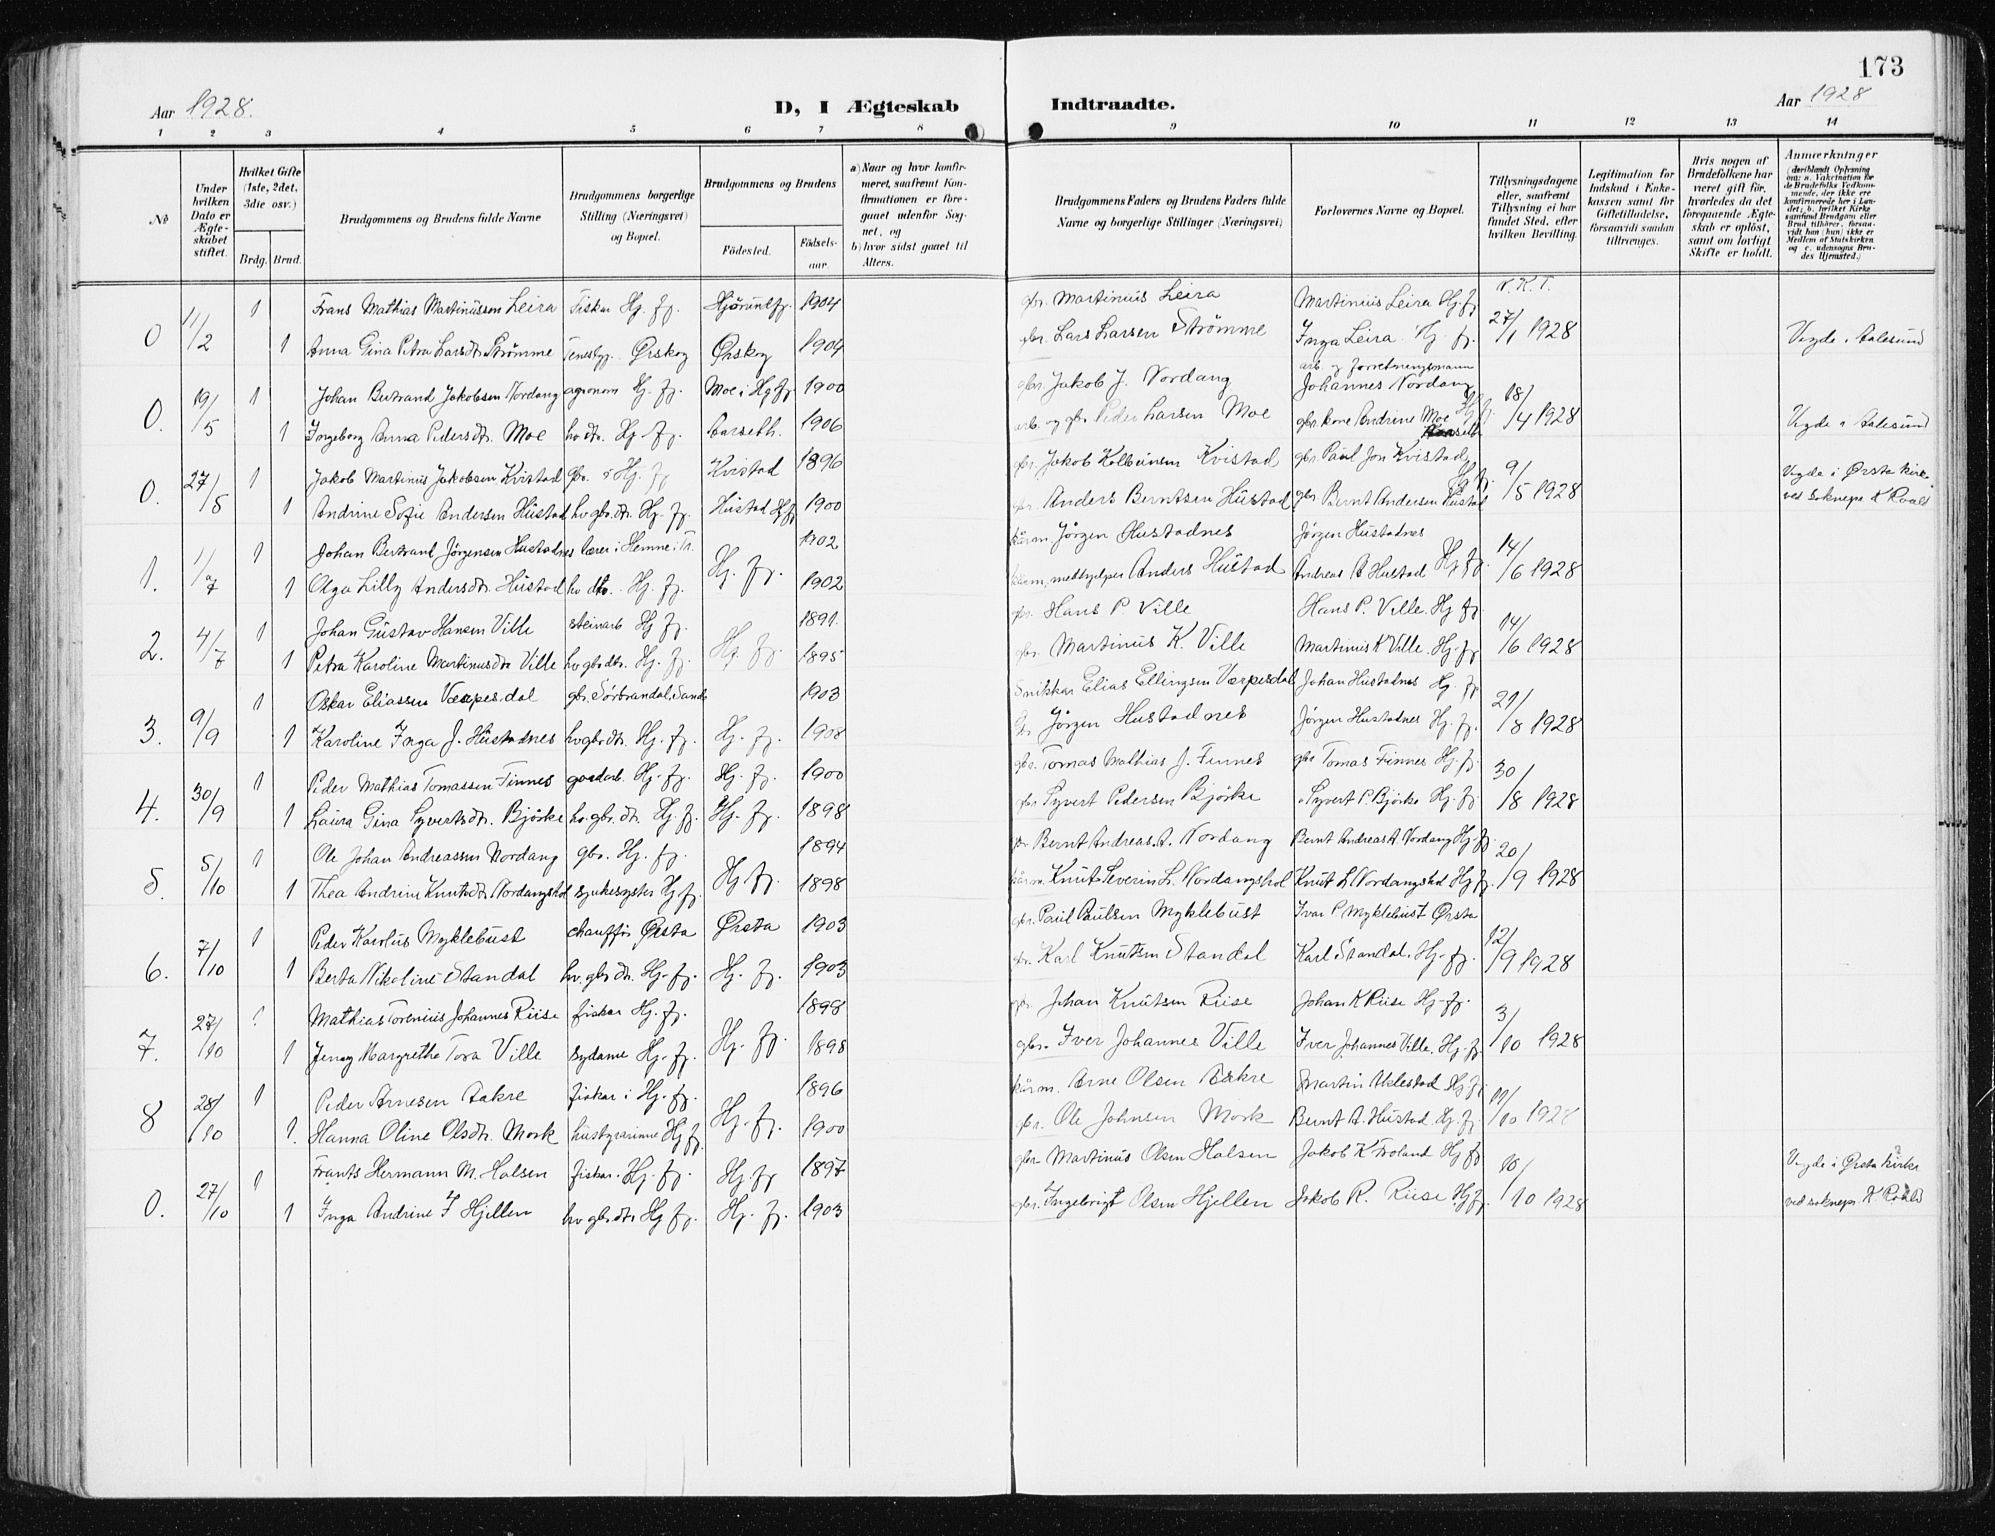 173
Aar 1928.
D, I Ægteskab
Indtraadte.
Aar 1928
1 2 3 4 5 6 7 8 9 10 11 12 13 14
No
Under hvilken Dato er Ægteskabet stiftet.
Hvilket Gifte (1ste, 2det, 3die osv.)
Brdg. Brud.
Brudgommens og Brudens fulde Navne
Brudgommens borgerlige Stilling (Næringsvei) og Bopæl.
Brudgommens og Brudens
Fødested.
Fødselsaar.
a) Naar og hvor konfirmeret, saafremt Konfirmationen er foregaaet udenfor Sognet, og
b) hvor sidst gaaet til Alters.
Brudgommens Faders og Brudens Faders fulde Navne og borgerlige Stillinger (Næringsvei)
Forlovernes Navne og Bopæl.
Tillysningsdagene eller, saafremt Tillysning ei har fundet Sted, efter hvilken Bevilling.
Legitimation for Indskud i Enkekassen samt for Giftetilladelse, forsaavidt saadan tiltrænges.
Hvis nogen af Brudefolkene har været gift før, hvorledes da det foregaaende Ægteskab er opløst, samt om lovligt Skifte er holdt.
Anmerkninger (deriblandt Oplysning om: a. Vakcination for de Brudefolks Vedkommende, der ikke ere konfirmerede her i Landet; b. hvilket Kirkesamfund Brudgom eller Brud tilhører, forsaavidt han (hun) ikke er Medlem af Statskirken og c. udensogns Brudes Hjemsted.)
0 11/2 1 Frans Mathias Martinussen Leira Fiskar Hj. fj. Hjørundfj. 1904 gbr. Martinus Leira Martinus Leira Hj. fj. V.K.T. 27/1 1928
1 Anna Gina Petra Larsdtr. Strømme Ørskog Ørskog 1904 gbr. Lars Larsen Strømme Inga Leira Hj. fj. Vigde i Aalesund
0. 19/5 1 Johan Bertrand Jakobsen Nordang agronom Hj. fj. Moe i Hj fj 1900 gbr. Jakob J. Nordang arb. og forretningsmann Johannes Nordang 18/4 1928
1 Ingeborg Anna Pedersdtr. Moe hv. dtr. Hj. fj. Aarseth. 1906 arb. og gbr. Peder Larsen Moe gbr. kone Andrine Moe Vigde i Aalesund
0. 27/5 1 Jakob Martinus Jakobsen Kvistad gbr. i Hj. fj Kvistad 1896 gbr. Jakob Kolbeinsen Kvistad gbr. Paul Jon Kvistad 9/5 1928 Vigde i Ørsta kirke
1 Andrine Sofie Andersen Hustad hv. gbr. dtr. Hj. fj. Hustad Hj fj 1900 gbr. Anders Berntsen Hustad gbr. Bernt Andersen Hustad ved soknepr. K Roald
1. 11/7 1 Johan Bertrand Jørgensen Hustadnes lærer i Hemne i Tr. Hj. fj. 1902 kårm. Jørgen Hustadnes Jørgen Hustadnes 14/6 1928
1 Olga Lilly Andersdtr. Hustad hv dtr. Hj. fj. 1902 medhjelper Anders Hustad Andreas A Hustad Hj fj.
2. 4/7 1 Johan Gustav Hansen Ville steinarb Hj fj. Hj. fj. 1891. gbr. Hans P. Ville Hans P. Ville. Hj fj. 14/6 1928
1 Petra Karoline Martinusdtr. Ville hv gbr dtr. Hj. fj. 1895 gbr. Martinus K. Ville Martinus K Ville. Hj. fj
3. 9/9 1 Oskar Eliassen Værpesdal gbr. Sørbrandal, Sande 1903 Snikkar Elias Ellingsen Værpesdal Johan Hustadnes Hj fj. 21/8 1928
1 Karoline Inga J. Hustadnes hv gbr dtr. Hj. fj. Hj. fj. 1908 Jørgen Hustadnes Jørgen Hustadnes Hj. fj.
4. 30/9 1 Peder Mathias Tomassen Finnes gardarb. Hj. fj. Hj. fj. 1900 gbr. Tomas Mathias J. Finnes gbr Tomas Finnes Hj. fj. 30/8 1928
1 Laura Gina Syvertsdtr. Bjørke hv. gbr. dtr. Hj. fj. Hj. fj. 1898 gbr Syvert Pedersen Bjørke Syvert P. Bjørke Hj. fj
5. 5/10 1 Ole Johan Andreassen Nordang gbr. Hj. fj. Hj. fj. 1894 gbr. Bernt Andreas A. Nordang Bernt Andreas A Nordang Hj. fj. 20/9 1928
1 Thea Andrine Knutsdtr. Nordangshol sjukesyster Hj fj. 1898 kårm. Knut Severin L. Nordangshol Knut L Nordangshol Hj fj.
6. 7/10 1 Peder Karolus Myklebust chauffør Ørsta Ørsta 1903 gbr. Paul Paulsen Myklebust Ivar P Myklebust Ørsta 12/9 1928
1 Berta Nikoline Standal hv. gbr dtr. Hj. fj. Hj. fj. 1903 gbr. Karl Knutsen Standal Karl Standal. Hj. fj.
7. 27/10 1 Mathias Torenius Johannes Riise fiskar Hj. fj. Hj. fj. 1898 gbr. Johan Knutsen Riise Johan K Riise Hj. fj. 3/10 1928
1 Jenny Margrethe Tora Ville sydame Hj. fj. 1898 gbr. Iver Johannes Ville Iver Johannes Ville. Hj. fj
8 28/10 1 Peder Arnesen Aakre fiskar i Hj. fj. Hj. fj. 1896 kårm. Arne Olsen Aakre Martin Aklestad Hj fj. 11/10 1928
1. Hanna Oline Olsdtr. Mork husstyrarinne Hj fj. 1900 gbr. Ole Johnsen Mork Bernt A. Hustad Hj. fj.
0. 27/10 1 Frants Hermann M. Halsen fiskar. Hj. fj. Hj. fj 1897 gbr Martinus Olsen Halsen Jakob K Froland Hj fj 10/10 1928 Vigde i Ørsta kirke
1 Inga Andrine I Hjellen hv gbr dtr Hj fj. Hj. fj. 1903 gbr. Ingebrigt Olsen Hjellen Jakob R. Riise Hj fj. ved soknepr. K Roald